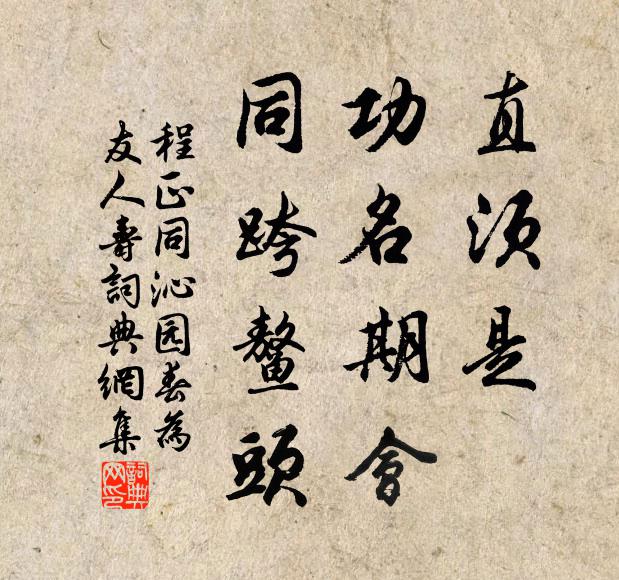 直须是
功名期會
同跨鳌頭
程正同沁园春為
友人壽詞典網集
詞典
网印